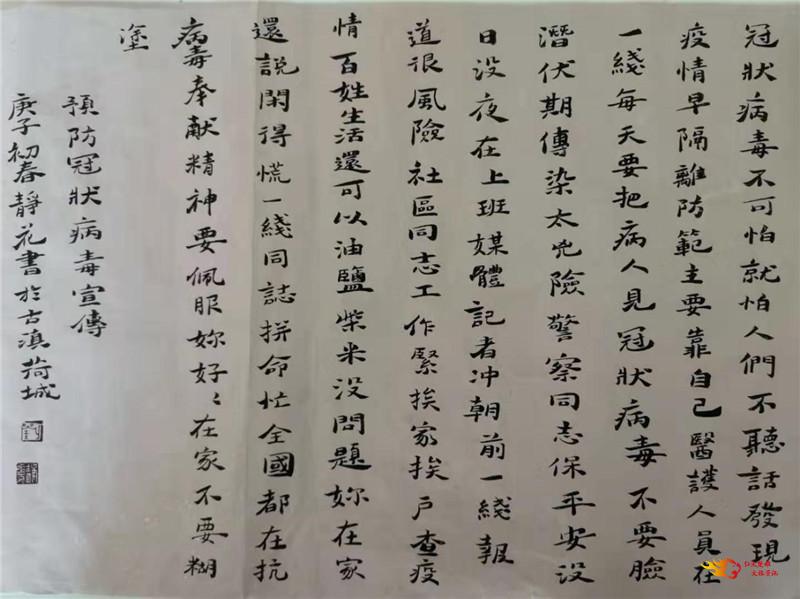 冠狀病毒不可怕就怕人們不聽話發現
疫情早隔離防範主要靠自己醫護人員在
一綫每天要把病人見冠狀病毒不要臉
潛伏期傳染太兇險警察同志保平安没
日没夜在上班媒體記者冲朝前一綫報
道很風險社區同志工作緊挨家挨户查疫
情百姓生活還可以油鹽柴米没問題妳在家
還説閑得慌一綫同誌拼命忙全國都在抗
病毒奉献精神要佩服妳好〻在家不要糊
塗
預防冠狀病毒宣傳
庚子初春靜花書於古滇荷城